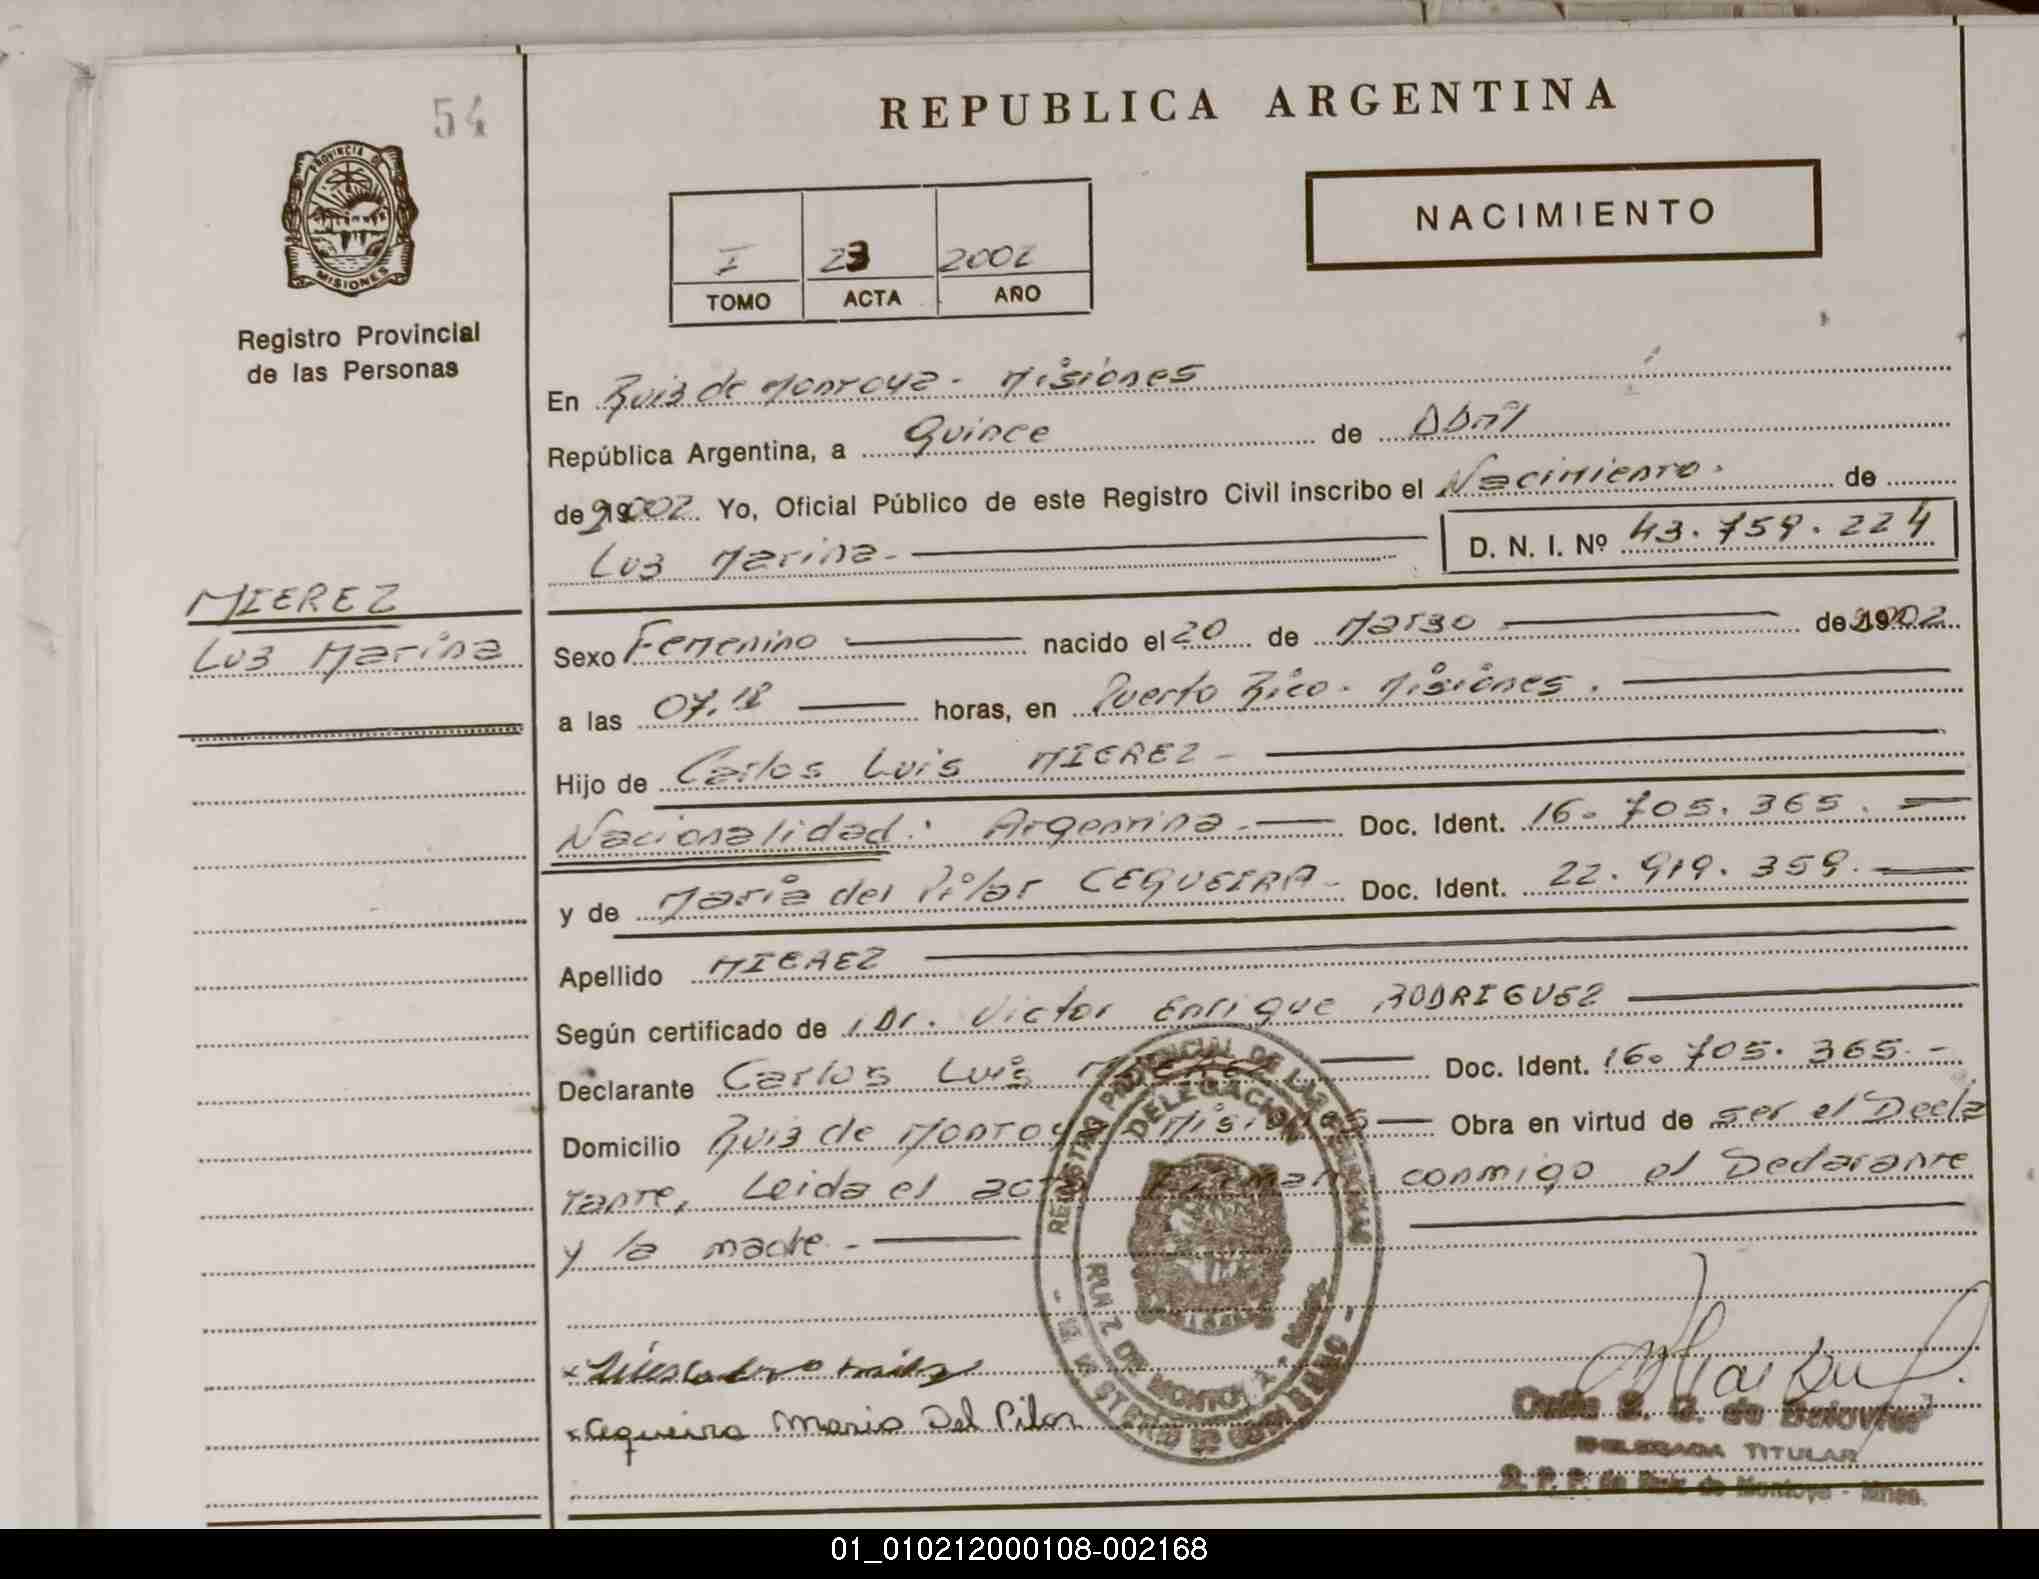 54
REPUBLICA ARGENTINA
PROVINCIA DE
MISIONES
NACIMIENTO
I 23 2002
TOMO ACTA AÑO
Registro Provincial
de las Personas
En Ruiz de Montoya - Misiones
República Argentina, a Quince de Abril
de 2002 Yo, Oficial Público de este Registro Civil inscribo el Nacimiento. de
Luz Marina. D. N. I. Nº 43.759.224
MIEREZ
Luz Marina
Sexo Femenino nacido el 20 de Marzo de 2002
a las 07,18 horas, en Puerto Rico - Misiones.
Hijo de Carlos Luis MIEREZ -
Nacionalidad: Argentina - Doc. Ident. 16.705.365.
y de Maria del Pilar CEQUEIRA - Doc. Ident. 22.919.359.
Apellido MIEREZ
Según certificado de Dr. Victor Enrique RODRIGUEZ
Declarante Carlos Luis MIEREZ Doc. Ident. 16.705.365. -
Domicilio Ruiz de Montoya Misiones Obra en virtud de ser el Decla
rante, Leida el acta Firman conmigo el Declarante
y la madre -
REGISTRO PROVINCIAL DE LAS PERSONAS
DELEGACION
RUIZ DE MONTOYA
MINISTERIO DE GOBIERNO
x Cequeira Maria Del Pilar
DELEGADA TITULAR
R. P. P. de Ruiz de Montoya - Mnes.
01_010212000108-002168